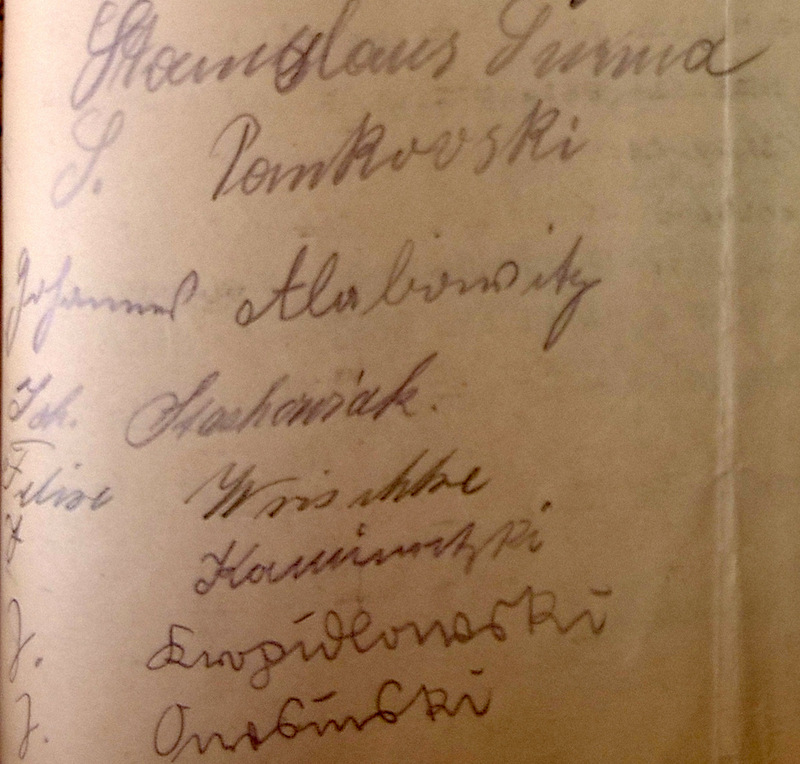 Stanislaus Surma
S. Pankovski
Johannes Alabowitz
Joh. Stachowiak.
Felixe
Kaminotzki
J. Kropidlowski
J.